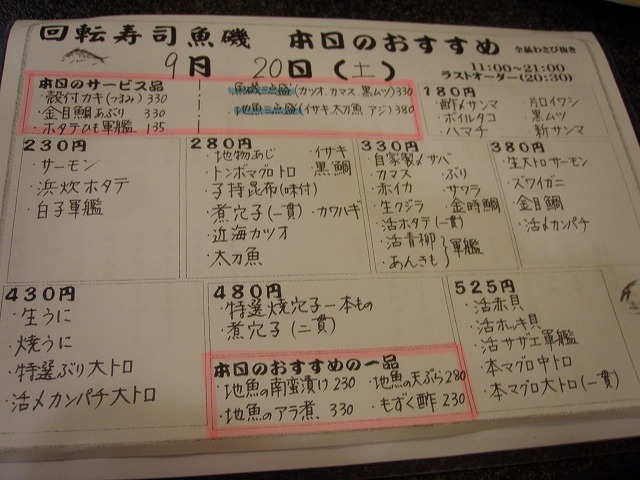 回転寿司魚磯 本日のおすすめ 全品わさび抜き
9月 20日(土)
11:00~21:00
ラストオーダー(20:30)
本日のサービス品
・殻付カキ(つまみ) 330
・金目鯛あぶり 330
・ホタテひも軍艦 135
魚磯三点盛(カツオ、カマス、黒ムツ) 330
・地魚三点盛(イサキ、太刀魚、アジ) 380
180円
・酢〆サンマ ・片口イワシ
・ボイルタコ ・黒ムツ
・ハマチ ・新サンマ
230円
・サーモン
・浜炊ホタテ
・白子軍艦
280円
・地物あじ ・イサキ
・トンボマグロトロ ・黒鯛
・子持昆布(味付)
・煮穴子(一貫) ・カワハギ
・近海カツオ
・太刀魚
330円
・自家製〆サバ
・カマス ・ぶり
・赤イカ ・サワラ
・生クジラ ・金時鯛
・活ホタテ(一貫)
・活青柳
・あんきも
}軍艦
380円
・生大トロサーモン
・ズワイガニ
・金目鯛
・活〆カンパチ
430円
・生うに
・焼うに
・特選ぶり大トロ
・活〆カンパチ大トロ
480円
・特選焼穴子一本もの
・煮穴子(二貫)
本日のおすすめの一品
・地魚の南蛮漬け 230 ・地魚の天ぷら 280
・地魚のアラ煮. 330 ・もずく酢 230
525円
・活赤貝
・活ホッキ貝
・活サザエ軍艦
・本マグロ中トロ
・本マグロ大トロ(一貫)